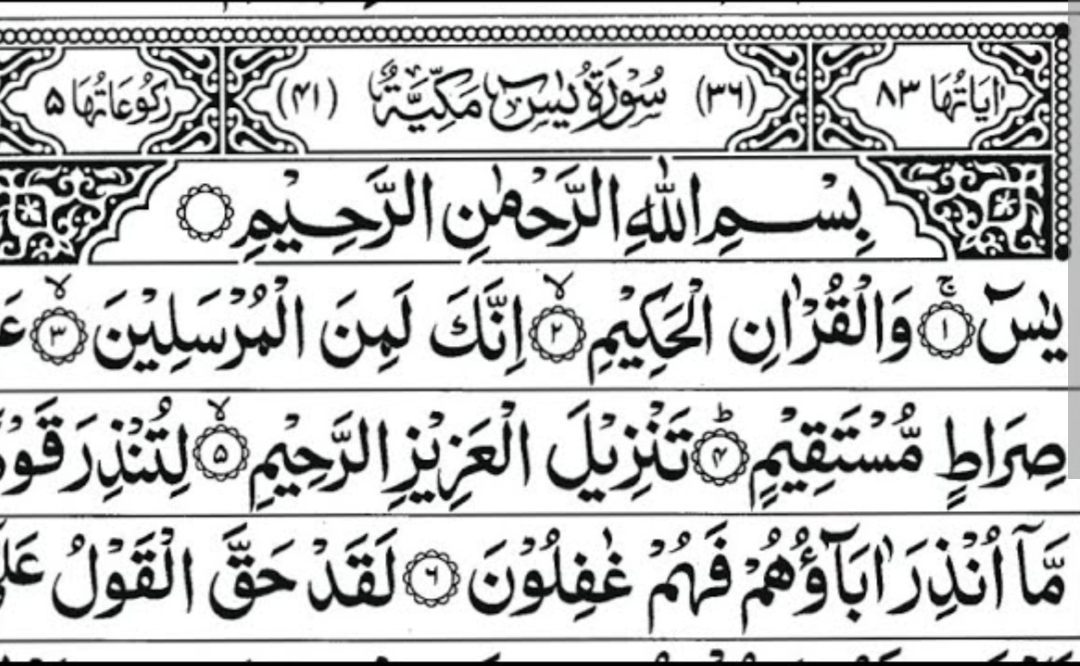 اٰيَاتُهَا ٨٣ (٣٦) سُوْرَةُ يٰسٓ مَكِّيَّةٌ (٤١) رُكُوْعَاتُهَا ٥
بِسْمِ اللّٰهِ الرَّحْمٰنِ الرَّحِيْمِ
يٰسٓ ۚ ﴿١﴾ وَالْقُرْاٰنِ الْحَكِيْمِ ۙ ﴿٢﴾ اِنَّكَ لَمِنَ الْمُرْسَلِيْنَ ۙ ﴿٣﴾
صِرَاطٍ مُّسْتَقِيْمٍ ؕ ﴿۴﴾ تَنْزِيْلَ الْعَزِيْزِ الرَّحِيْمِ ۙ ﴿۵﴾ لِتُنْذِرَ
مَّآ اُنْذِرَ اٰبَآؤُهُمْ فَهُمْ غٰفِلُوْنَ ﴿۶﴾ لَقَدْ حَقَّ الْقَوْلُ